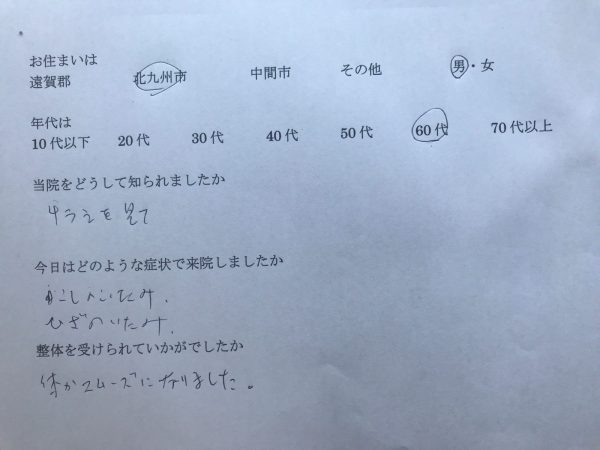 お住まいは
遠賀郡 北九州市 中間市 その他 男・女
年代は
10代以下 20代 30代 40代 50代 60代 70代以上
当院をどうして知られましたか
チラシを見て
今日はどのような症状で来院しましたか
こしのいたみ.
ひざのいたみ.
整体を受けられていかがでしたか
体がスムーズになりました。